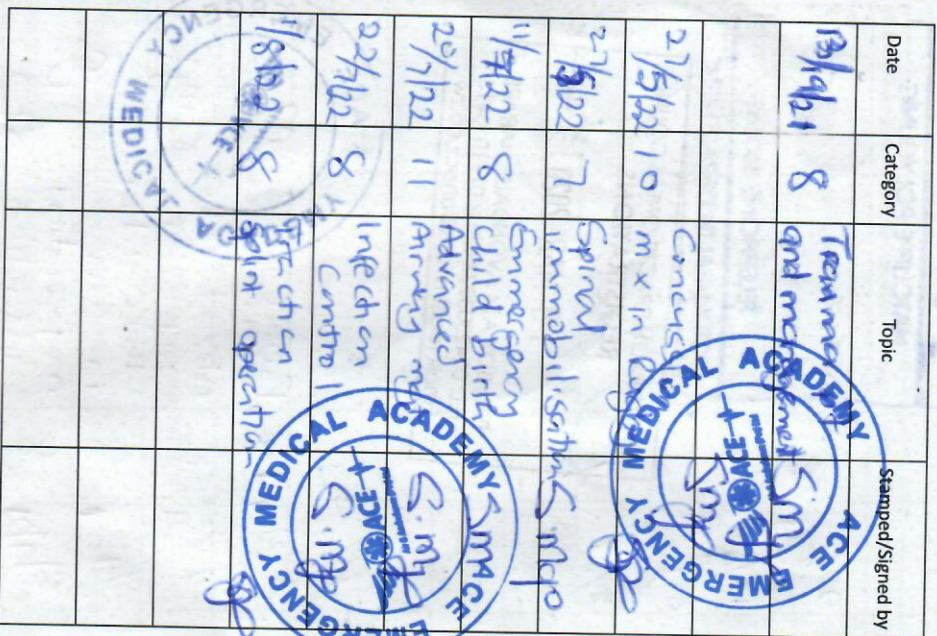 Date Category Topic Stamped/Signed by
13/9/21 8 Trauma
and management S.Mgo
27/5/22 10 Concuss
mx in
27/5/22 7 Spinal
immobilisation S.Mgo
11/7/22 8 Emmergency
Child birth S.M
20/7/22 11 Advanced
Airway mgt S.Mgo
22/7/22 8 Infection
Control S.Mgo
1/8/22 8 Traction
Splint operation
ACE EMERGENCY MEDICAL ACADEMY
ACE
ACE EMERGENCY MEDICAL ACADEMY
ACE
MEDICAL